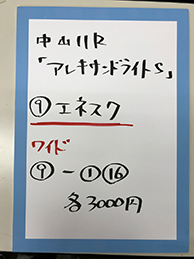 中山11R
「アレキサンドライトS」
⑨エネスク
ワイド
⑨-①⑯
各3000円